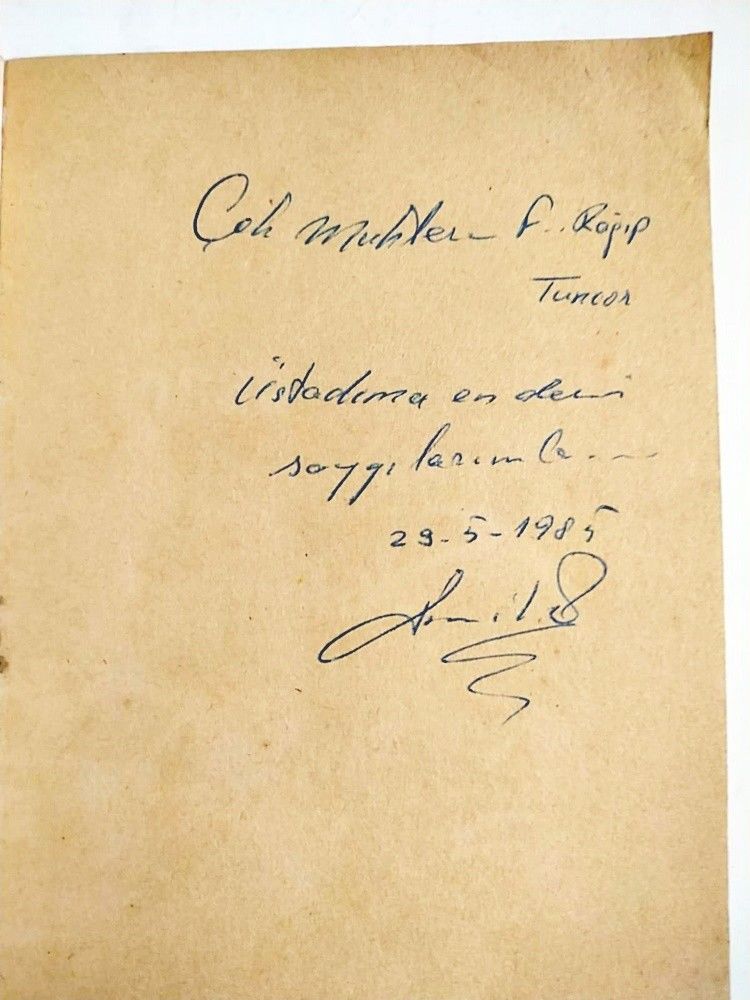 Çok Muhterem F. Ragıp
Tuncor
Üstadıma en derin
saygılarımla....
29-5-1985